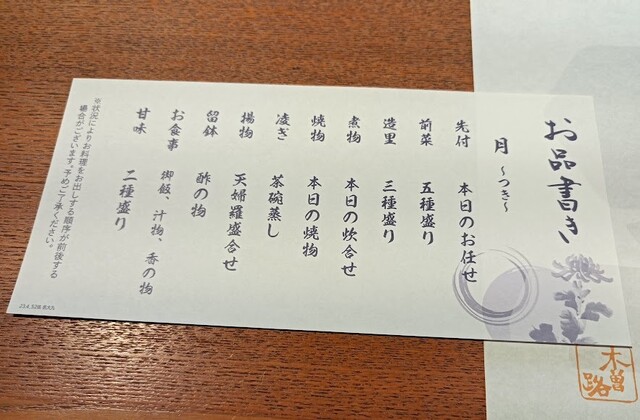 お品書き
月 ～つき～
先付 本日のお任せ
前菜 五種盛り
造里 三種盛り
煮物 本日の炊合せ
焼物 本日の焼物
凌ぎ 茶碗蒸し
揚物 天婦羅盛合せ
留鉢 酢の物
お食事 御飯、汁物、香の物
甘味 二種盛り
※状況によりお料理をお出しする順序が前後する
場合がございます。予めご了承ください。
木曽路